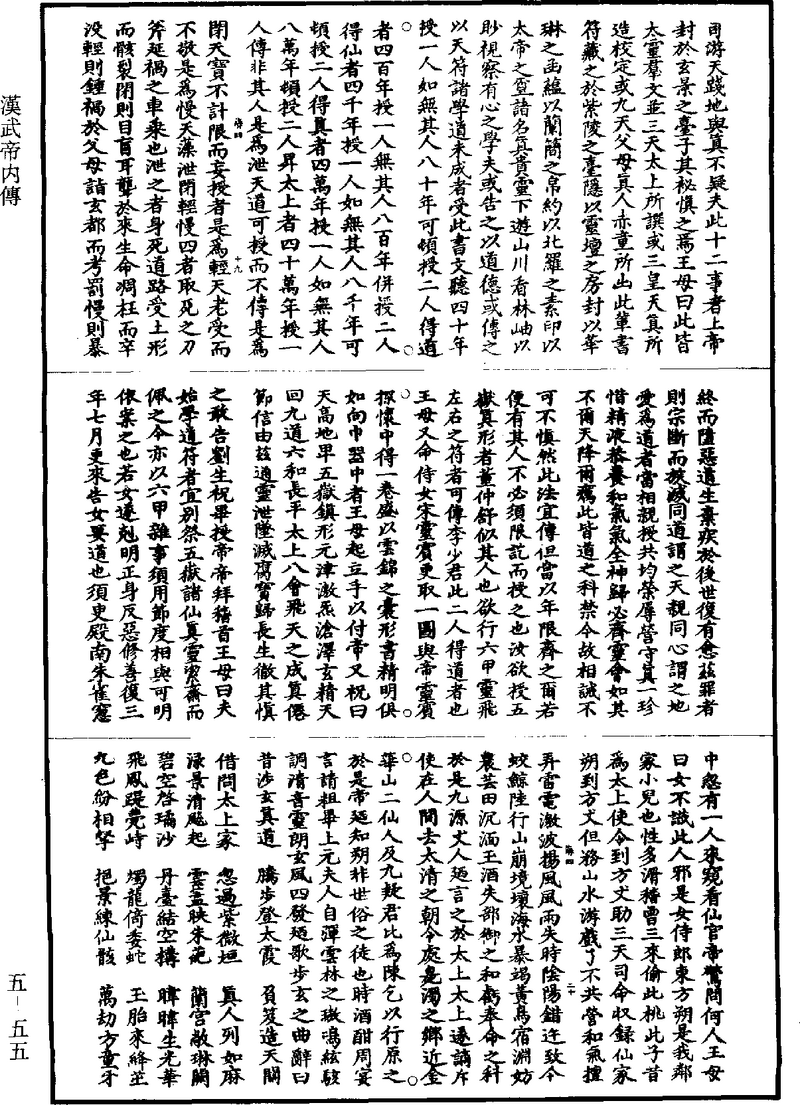 司游天踐地與真不疑夫此十二事者上帝
封於玄景之臺子其秘慎之焉王母曰此皆
太靈羣文並三天太上所譔或三皇天真所
造校定或九天父母真人赤童所出此輩書
符藏之於紫陵之臺隱以靈壇之房封以華
琳之函蘊以蘭簡之帛約以北羅之素印以
太帝之璽諸名真貴靈下遊山川看林岫以
眇視察有心之學夫或告之以道德或傳之
以天符諸學道未成者受此書文聽四十年
授一人如無其人八十年可頓授二人得道
者四百年授一人無其人八百年併授二人
得仙者四千年授一人如無其人八千年可
頓授二人得真者四萬年授一人如無其人
八萬年頓授二人昇太上者四十萬年授一
人傳非其人是為泄天道可授而不傳是為
閉天寶不計限而妄授者是為輕天老受而
不敬是為慢天藻泄閉輕慢四者取死之刀
斧延禍之車乘也泄之者身死道路受土形
而骸裂閉則目盲耳聾於來生命凋枉而卒
没輕則鍾禍於父母詣玄都而考罰慢則暴
終而墮惡道生棄疾於後世復有愈茲罪者
則宗斷而族滅同道謂之天親同心謂之地
愛為道者當相親授共均榮辱營守真一珍
惜精液務養和氣氣全神歸必齊靈會如其
不爾天降爾禍此皆道之科禁今故相誡不
可不慎然此法宜傳但當以年限齊之爾若
便有其人不必須限訖而授之也汝欲授五
嶽真形者董仲舒似其人也欲行六甲靈飛
左右之符者可傳李少君此二人得道者也
王母又命侍女宋靈賓更取一圖與帝靈賓
探懷中得一卷盛以雲錦之囊形書精明俱
如向巾器中者王母起立手以付帝又祝曰
天高地卑五嶽鎮形元津激炁滄澤玄精天
回九道六和長平太上八會飛天之成真僊
節信由茲通靈泄墜滅腐寶歸長生徹其慎
之敢告劉生祝畢授帝帝拜稽首王母曰夫
始學道符者宜別祭五嶽諸仙真靈潔齋而
佩之今亦以六甲雜事須用節度相與可明
依案之也若女遂剋明正身反惡修善復三
年七月更來告女要道也須臾殿南朱雀窻
中忽有一人來窺看仙官帝驚問何人王母
曰女不識此人邪是女侍郎東方朔是我鄰
家小兒也性多滑稽曾三來偷此桃此子昔
為太上使令到方丈助三天司命収録仙家
朔到方丈但務山水游戲了不共營和氣擅
弄雷電激波揚風風雨失時陰陽錯迕致令
蛟鯨陸行山崩境壞海水暴竭黃鳥宿淵妨
農芸田沉湎王酒失部御之和虧奉命之科
於是九源丈人廼言之於太上太上遂謫斥
使在人間去太清之朝令處臭濁之鄉近金
華山二仙人及九疑君比為陳乞以行原之
於是帝廼知朔非世俗之徒也時酒酣周宴
言請粗畢上元夫人自彈雲林之璈鳴絃駭
調清音靈朗玄風四發廼歌步玄之曲辭曰
昔涉玄真道　騰步登太霞　負笈造天關
借問太上家　忽過紫微垣　真人列如麻
渌景清飈起　雲蓋映朱葩　蘭宮敞琳闕
碧空啓瓊沙　丹臺結空搆　暐暐生光華
飛鳳踶甍峙　燭龍倚委蛇　玉胎來絳芝
九色紛相拏　挹景練仙骸　萬劫方童牙
十九
二十
漢武帝内傳
五-五五